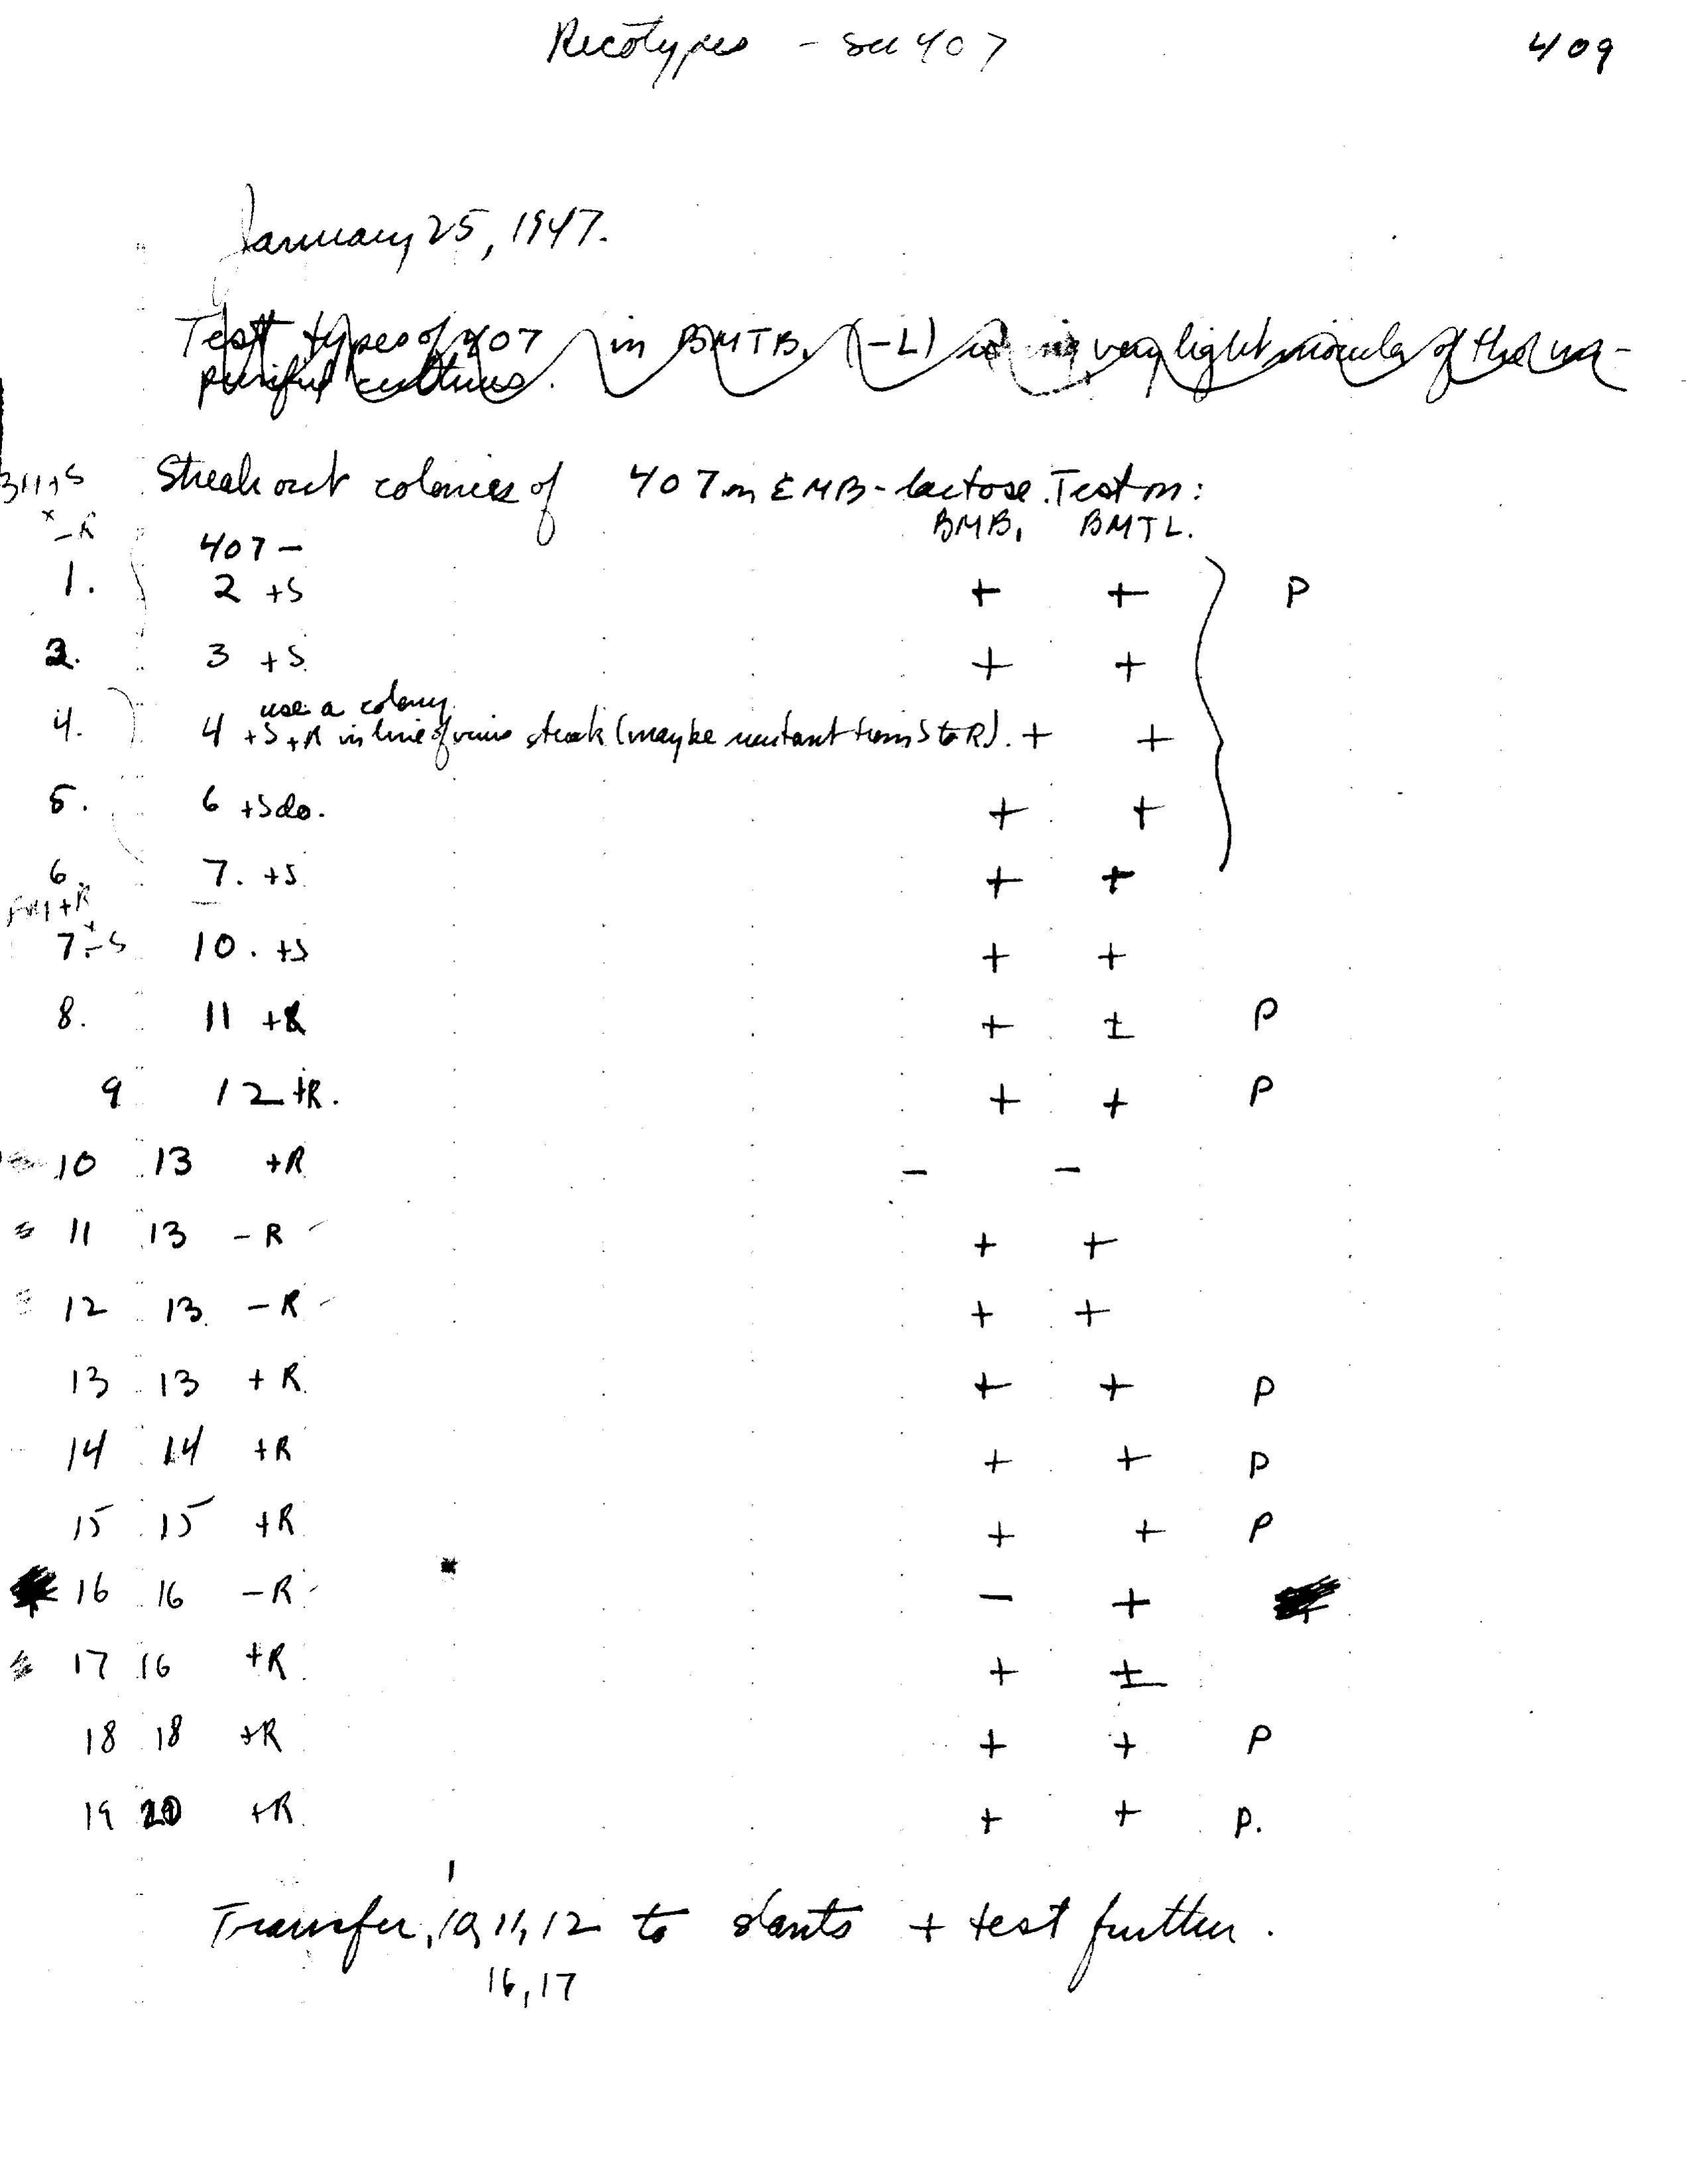 Recotypes - see 407 409
January 25, 1947.
Test types of 407 in BMTB, (-L) using very light inocula of the un-
purified cultures.
Streak out colonies of 407 on EMB-lactose. Test on:
-R
BMB, BMTL.
407 -
1. 2 +S + + P
3. 3 +S + +
use a colony
4. 4 +S +R in line of virus streak (maybe mutant from S to R). + +
5. 6 +S do. + +
6. 7. +S + +
+R
7. -S 10. +S + +
8. 11 +R + ± P
9 12 +R. + + P
10 13 +R - -
11 13 - R + +
12 13 - R + +
13 13 + R + + P
14 14 +R + + P
15 15 +R + + P
16 16 -R - +
17 16 +R + ±
18 18 +R + + P
19 20 +R + + P.
Transfer, 10, 11, 12 to slants + test further.
16, 17